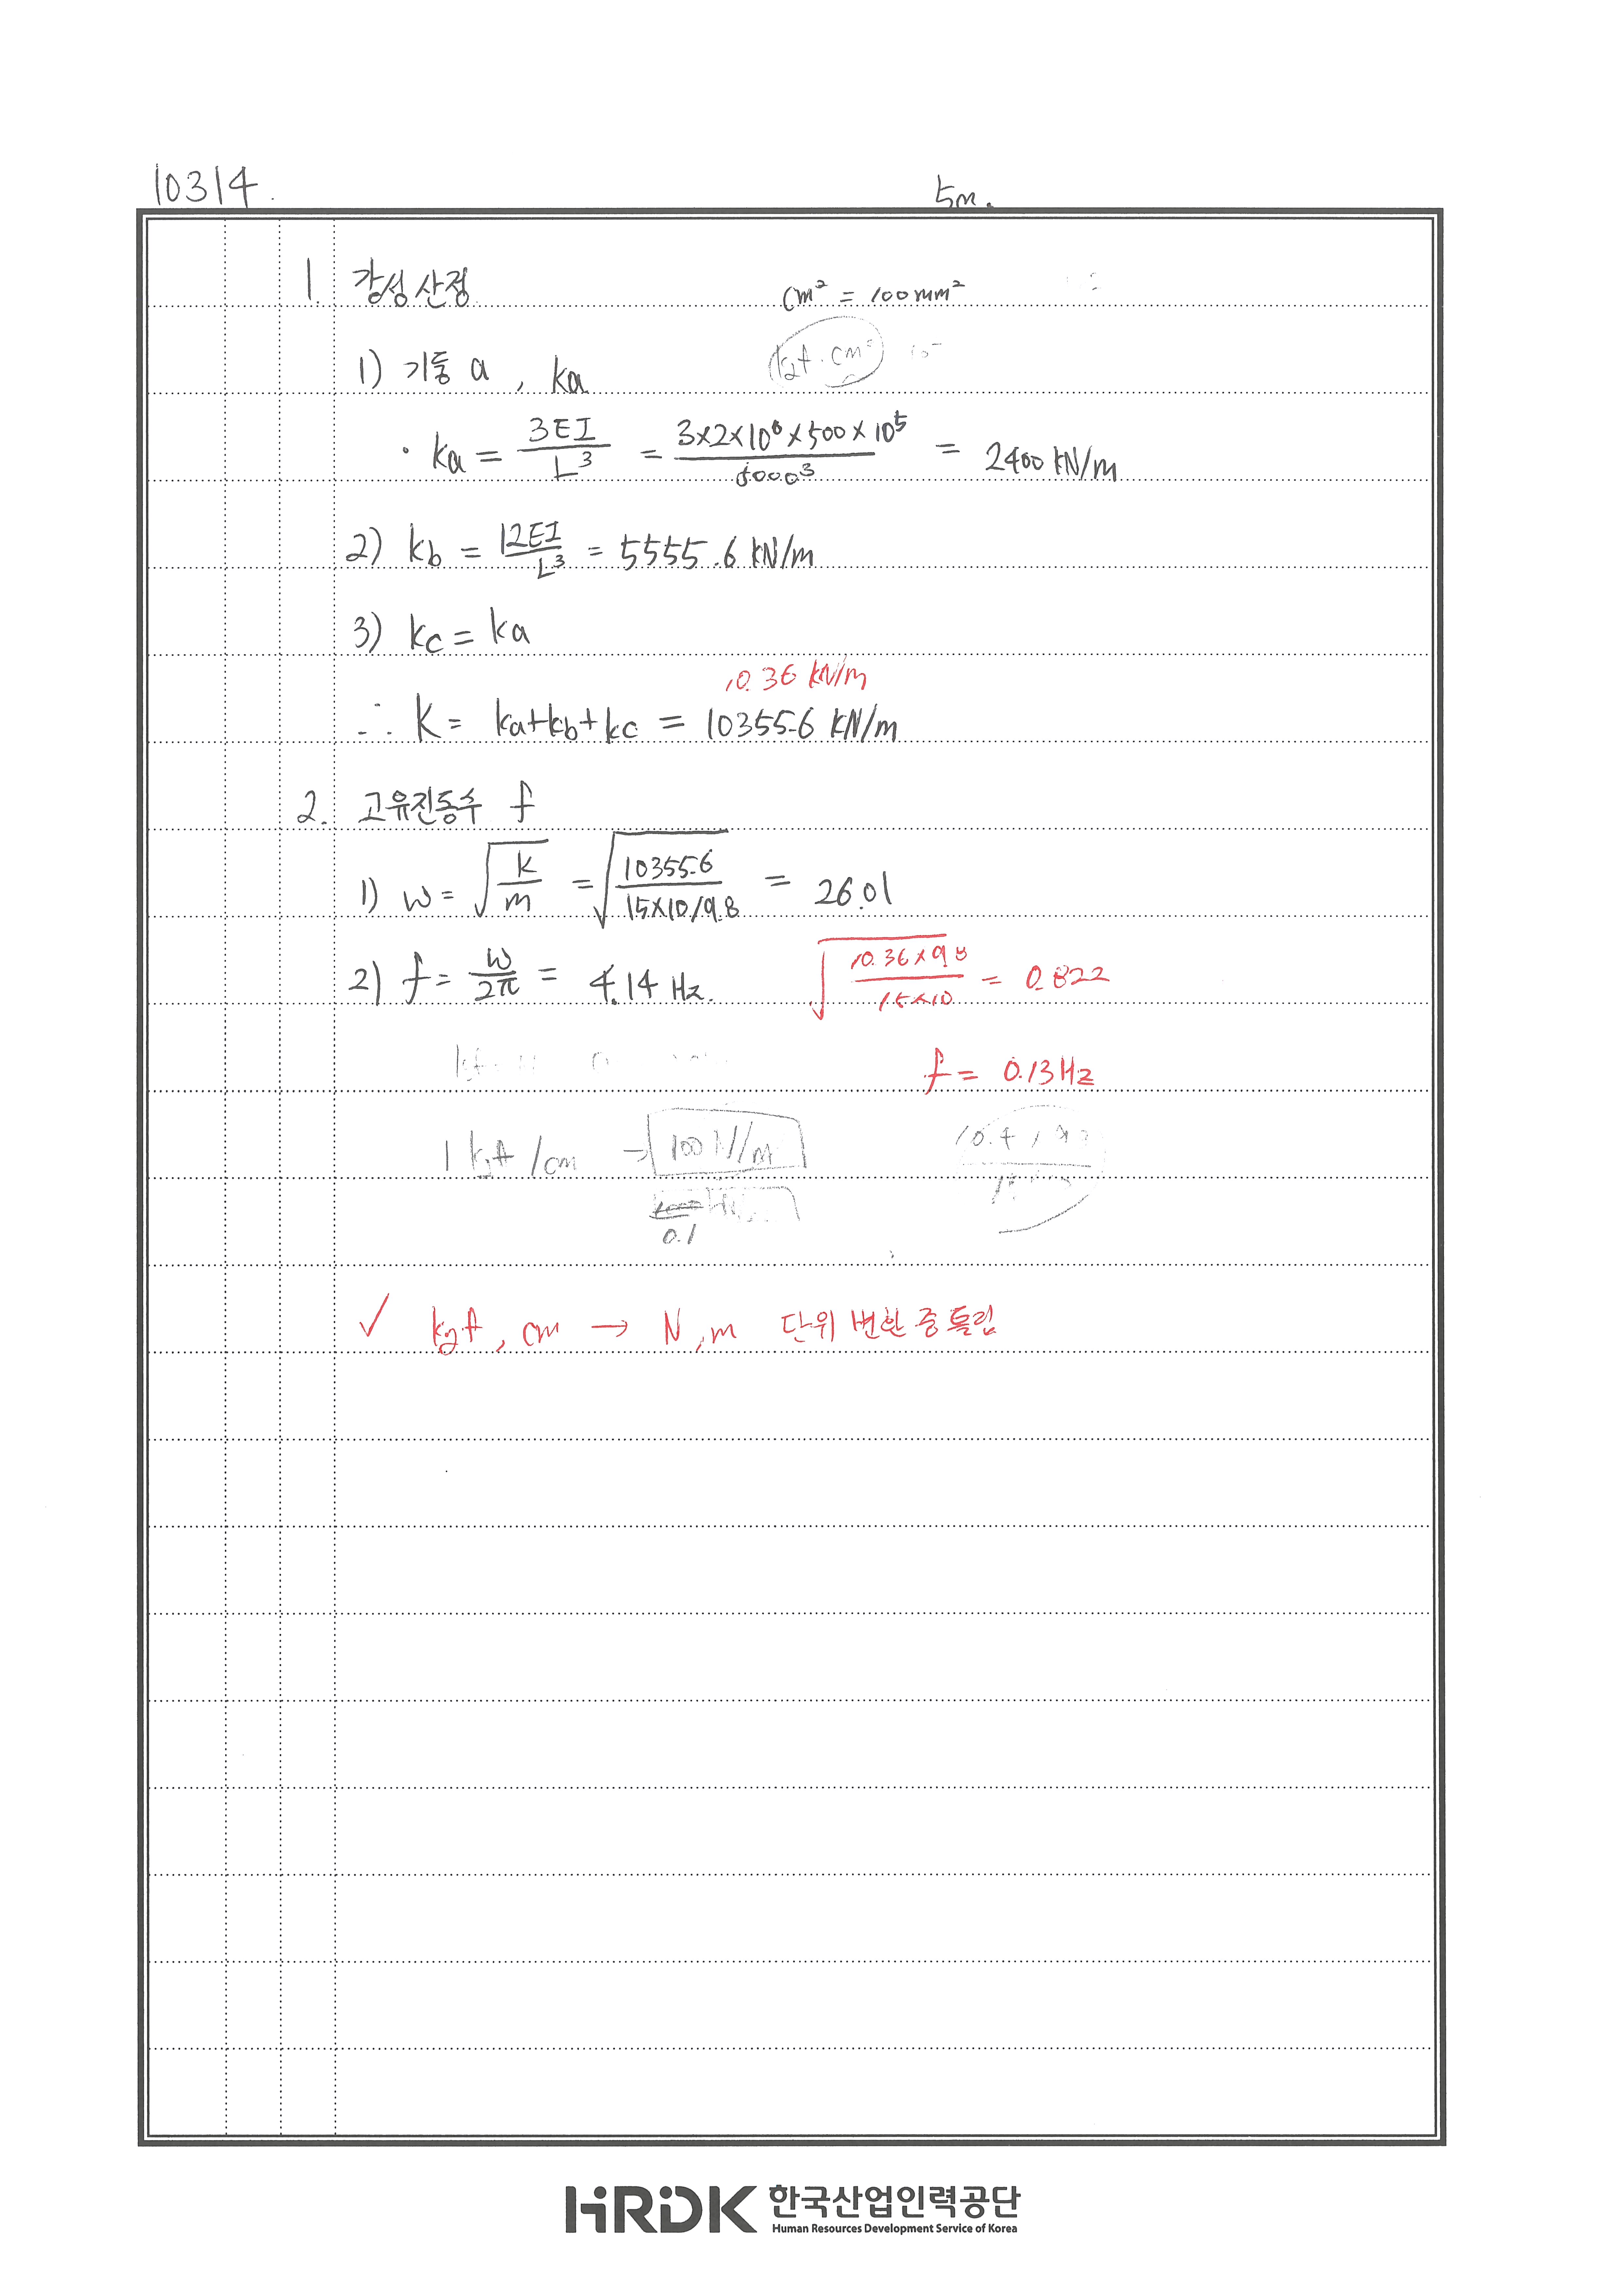 10314.
5m.
1. 강성 산정
cm² = 100mm²
1) 기둥 a, ka
kgf·cm²
· ka = 3EI / L³ = 3×2×10⁶×500×10⁵ / 5000³ = 2400 kN/m
2) kb = 12EI / L³ = 5555.6 kN/m
3) kc = ka
10.36 kN/m
∴ K = ka+kb+kc = 10355.6 kN/m
2. 고유진동수 f
1) w = √(k/m) = √(10355.6 / 15×10/9.8) = 26.01
2) f = w / 2π = 4.14 Hz.
√(10.36×9.8 / 15×10) = 0.822
f = 0.13Hz
1 kgf/cm → 100 N/m
0.1
✓ kgf, cm → N, m 단위 변환 중 틀림
HRDK 한국산업인력공단
Human Resources Development Service of Korea